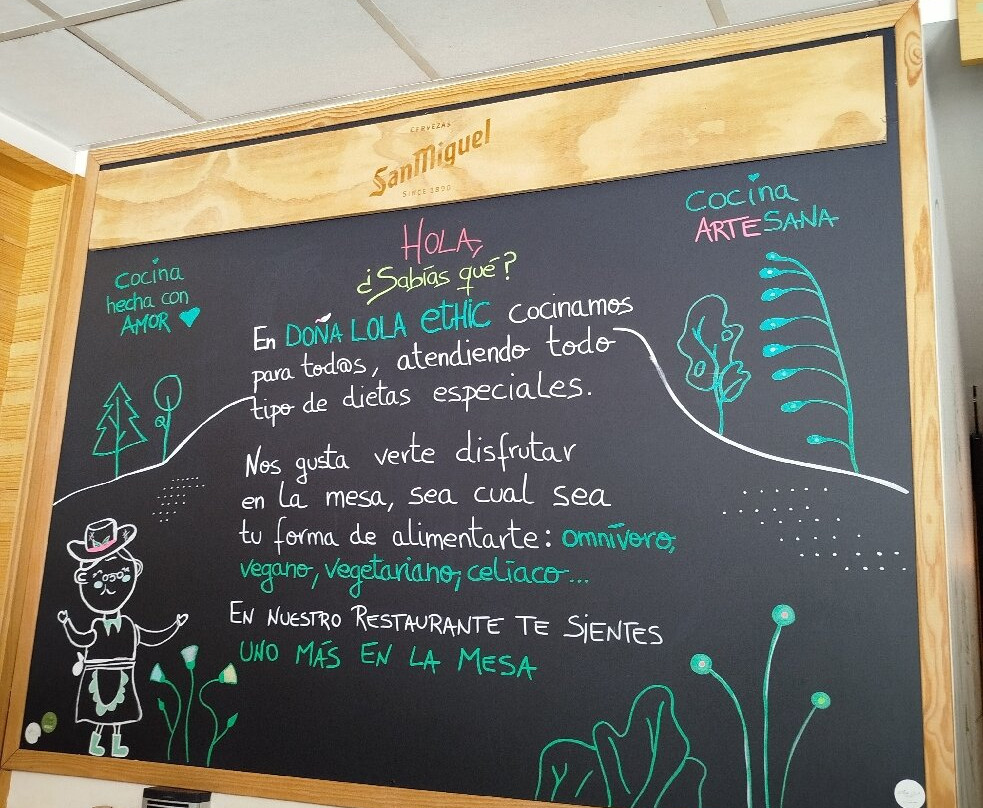 CERVEZAS
SanMiguel
SINCE 1890
Cocina
ARTESANA
HOLA,
¿Sabías qué?
Cocina
hecha con
AMOR
En DOÑA LOLA etHic cocinamos
para tod@s, atendiendo todo
tipo de dietas especiales.
Nos gusta verte disfrutar
en la mesa, sea cual sea
tu forma de alimentarte: omnívoro,
vegano, vegetariano, celíaco...
EN NUESTRO RESTAURANTE TE SIENTES
UNO MÁS EN LA MESA